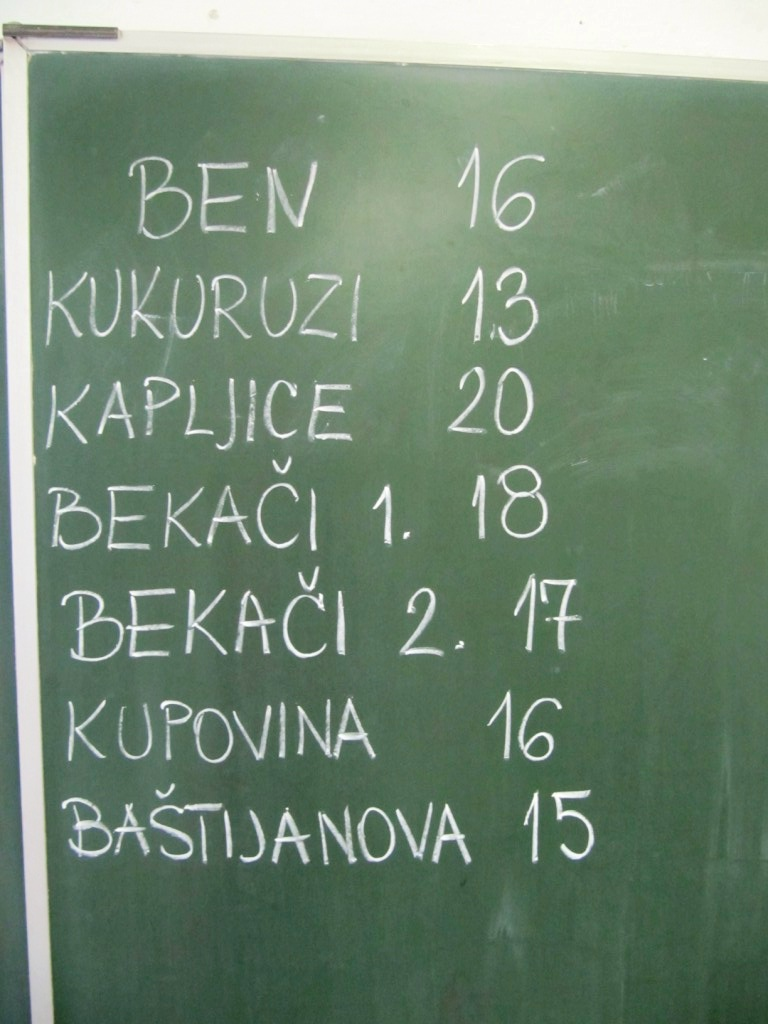 BEN 16
KUKURUZI 13
KAPLJICE 20
BEKAČI 1. 18
BEKAČI 2. 17
KUPOVINA 16
BAŠTIJANOVA 15